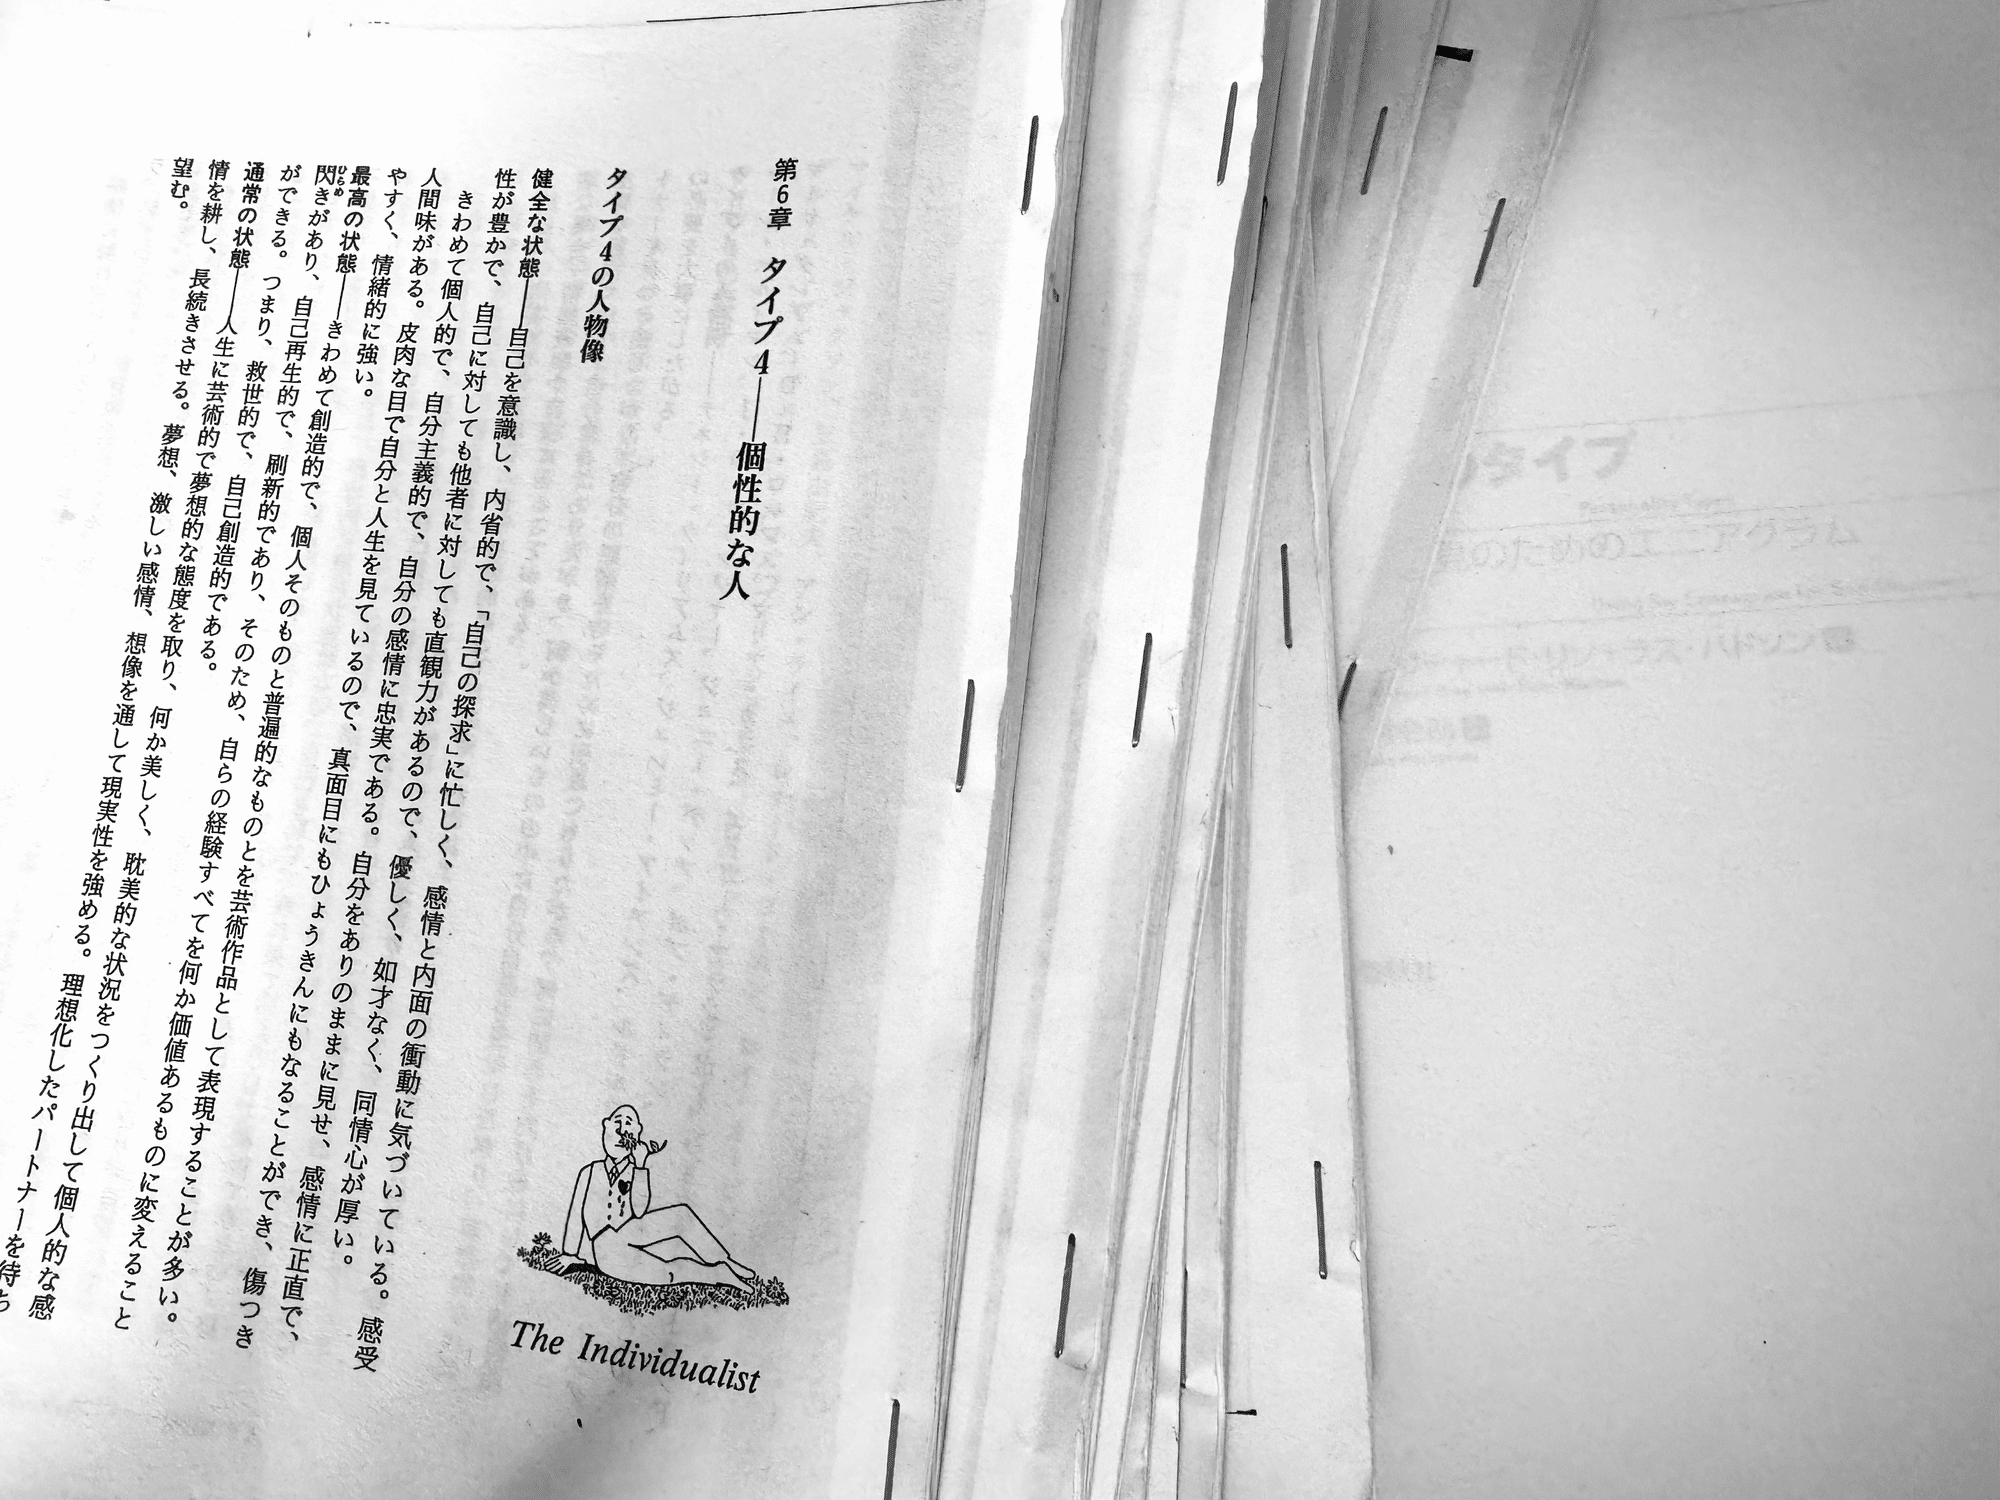 第6章　タイプ4――個性的な人
タイプ4の人物像
健全な状態――自己を意識し、内省的で、「自己の探求」に忙しく、感情と内面の衝動に気づいている。感受
性が豊かで、自己に対しても他者に対しても直観力があるので、優しく、如才なく、同情心が厚い。
きわめて個人的で、自分主義的で、自分の感情に忠実である。自分をありのままに見せ、感情に正直で、
人間味がある。皮肉な目で自分と人生を見ているので、真面目にもひょうきんにもなることができ、傷つき
やすく、情緒的に強い。
最高の状態――きわめて創造的で、個人そのものと普遍的なものとを芸術作品として表現することが多い。
閃きがあり、自己再生的で、刷新的であり、そのため、自らの経験すべてを何か価値あるものに変えること
ができる。つまり、救世的で、自己創造的である。
通常の状態――人生に芸術的で夢想的な態度を取り、何か美しく、耽美的な状況をつくり出して個人的な感
情を耕し、長続きさせる。夢想、激しい感情、想像を通して現実性を強める。理想化したパートナーを待ち
望む。
ひらめ
The Individualist
のタイプ
のためのエニアグラム